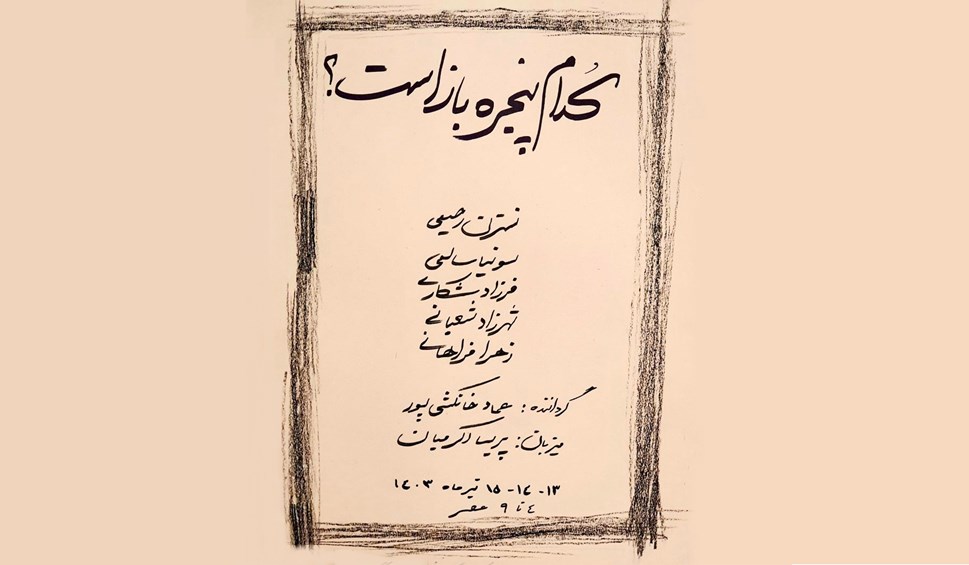 کُدام پنجره باز است؟
نسترن رحیمی
سونیا سالمی
فرزاد شکاری
شهرزاد شعبانی
زهرا فراهانی
گرداننده: عماد خانکشی‌پور
میزبان: پریسا اکرمیان
۱۳-۱۴-۱۵ تیرماه ۱۴۰۳
۴ تا ۹ عصر